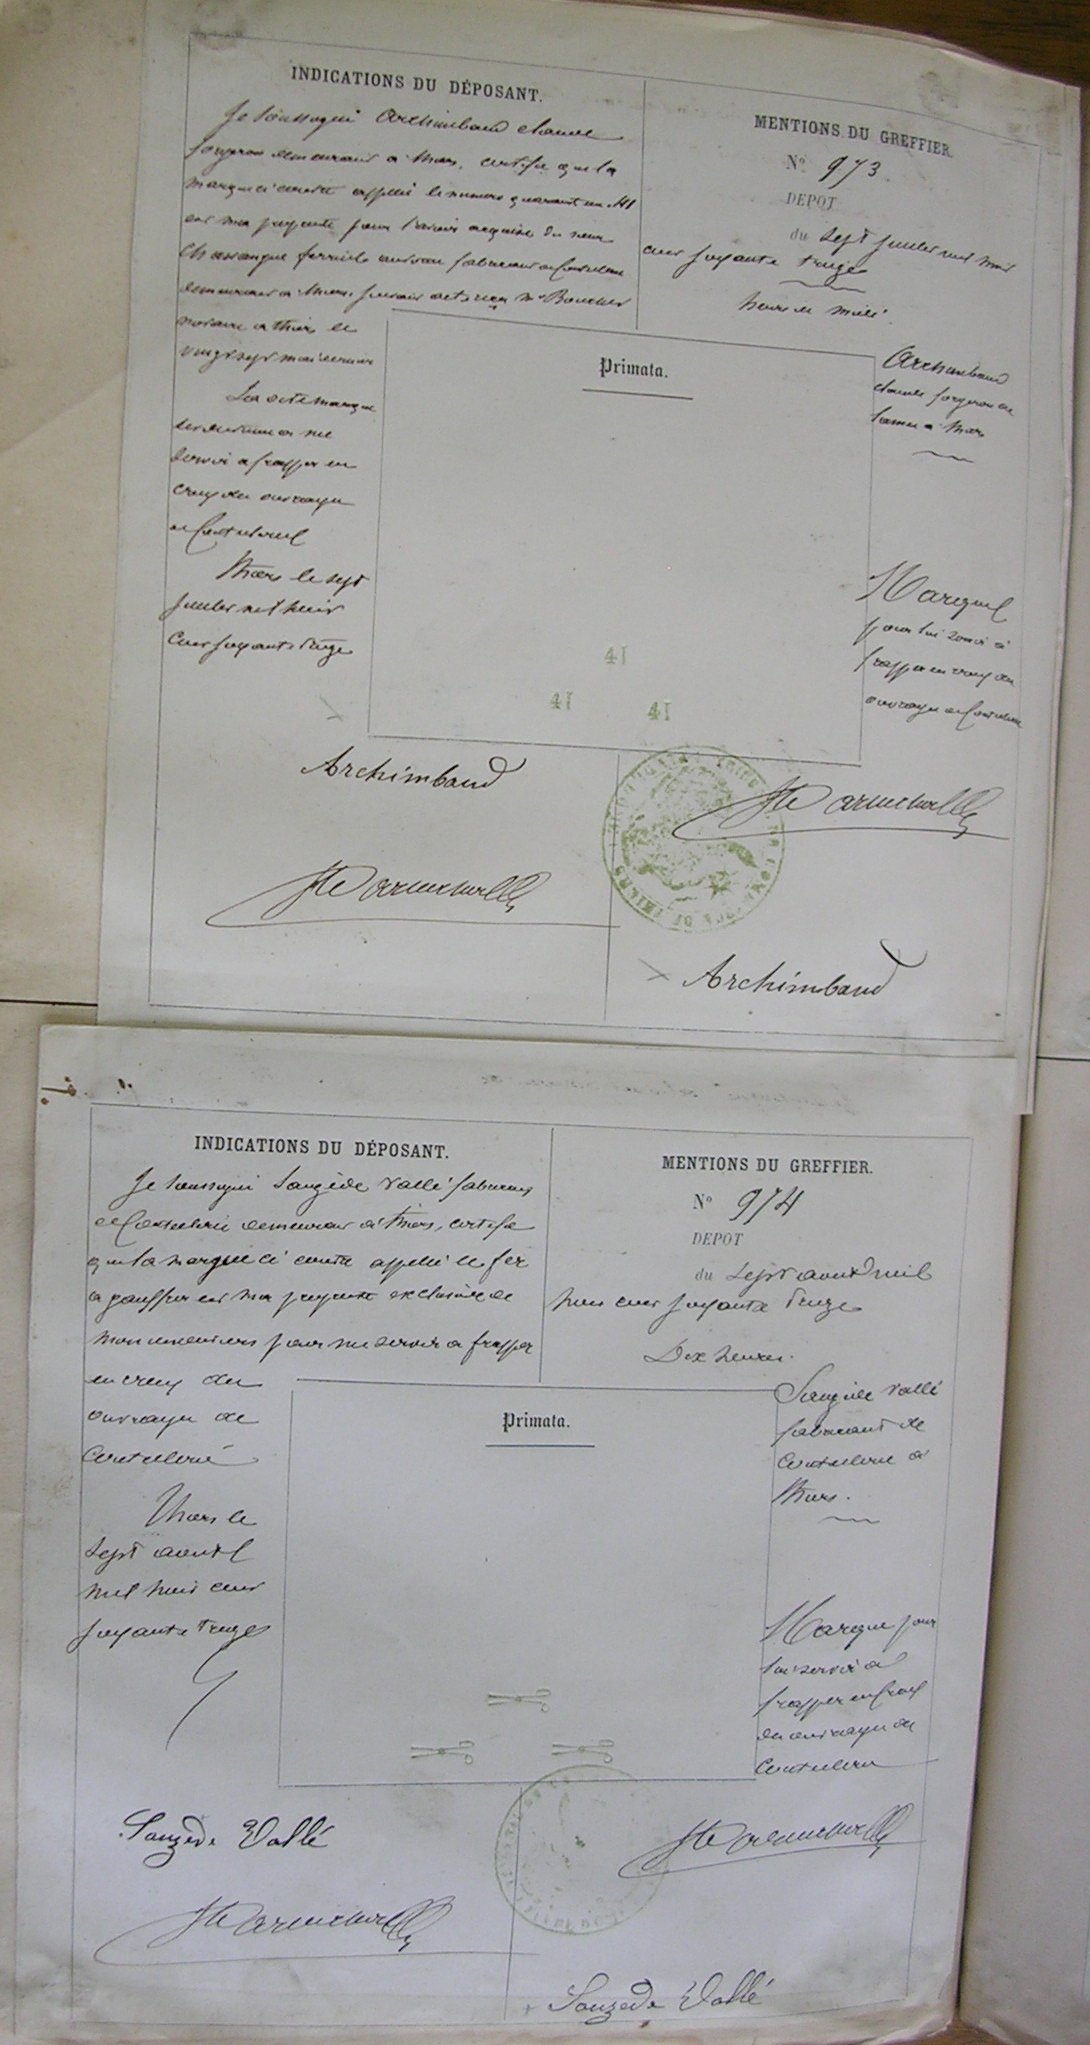 INDICATIONS DU DÉPOSANT.
Je soussigné Archimbaud Claude
forgeron demeurant à Thiers, certifie que la
marque ci contre appelée le numéro quarante un 41
est ma propriété pour l'avoir acquise du sieur
fabricant de Coutellerie
demeurant à Thiers, suivant acte reçu Me
notaire à Thiers le
vingt sept mai dernier
La dite marque
est destinée à me
servir à frapper en
creux des ouvrages
de Coutellerie
Thiers le sept
juillet mil huit
cent soixante treize
Archimbaud
MENTIONS DU GREFFIER.
No 973
DEPOT
du sept juillet mil huit
cent soixante treize
heure de midi.
Primata.
Archimbaud
Claude forgeron de
à Thiers
Marque
pour lui servir à
frapper en creux des
ouvrages de Coutellerie
41
41 41
Archimbaud
INDICATIONS DU DÉPOSANT.
Je soussigné Sauzède Vallé fabricant
de Coutellerie demeurant à Thiers, certifie
que la marque ci contre appelée le fer
à gauffrer est ma propriété exclusive de
pour me servir à frapper
en creux des
ouvrages de
Coutellerie
Thiers le
sept août
mil huit cent
soixante treize
Sauzède Vallé
MENTIONS DU GREFFIER.
No 974
DEPOT
du sept août mil
huit cent soixante treize
Dix heures.
Primata.
Sauzède Vallé
fabricant de
Coutellerie à
Thiers.
Marque pour
lui servir à
frapper en creux
des ouvrages de
Coutellerie
Sauzède Vallé